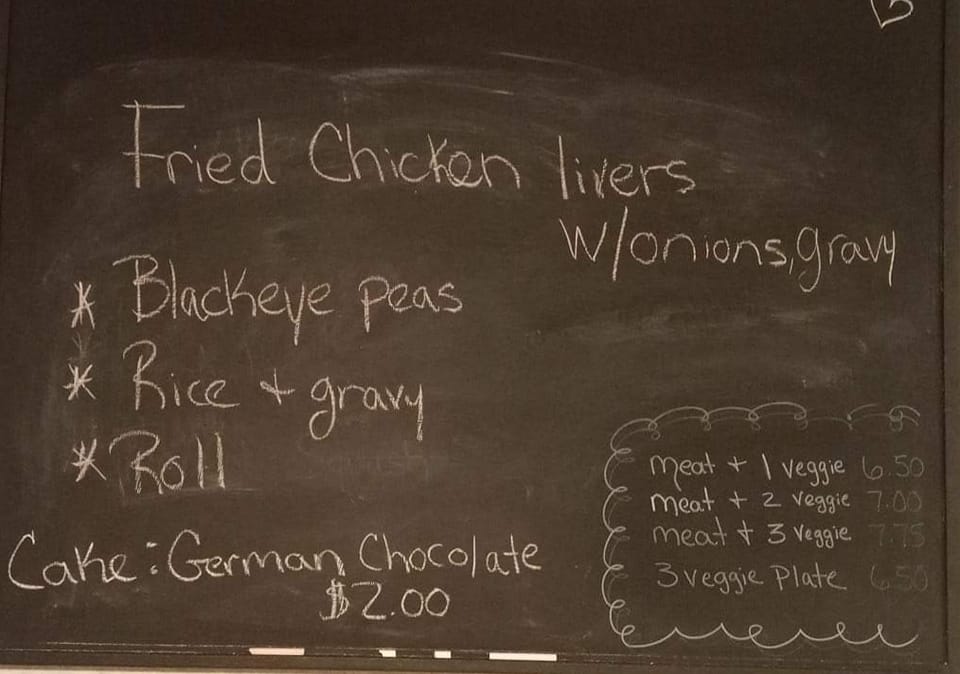 Fried Chicken livers
w/onions, gravy
* Blackeye peas
* Rice + gravy
* Roll
Cake: German Chocolate
$2.00
meat + 1 veggie 6.50
meat + 2 veggie 7.00
meat + 3 veggie 7.75
3 veggie Plate 6.50